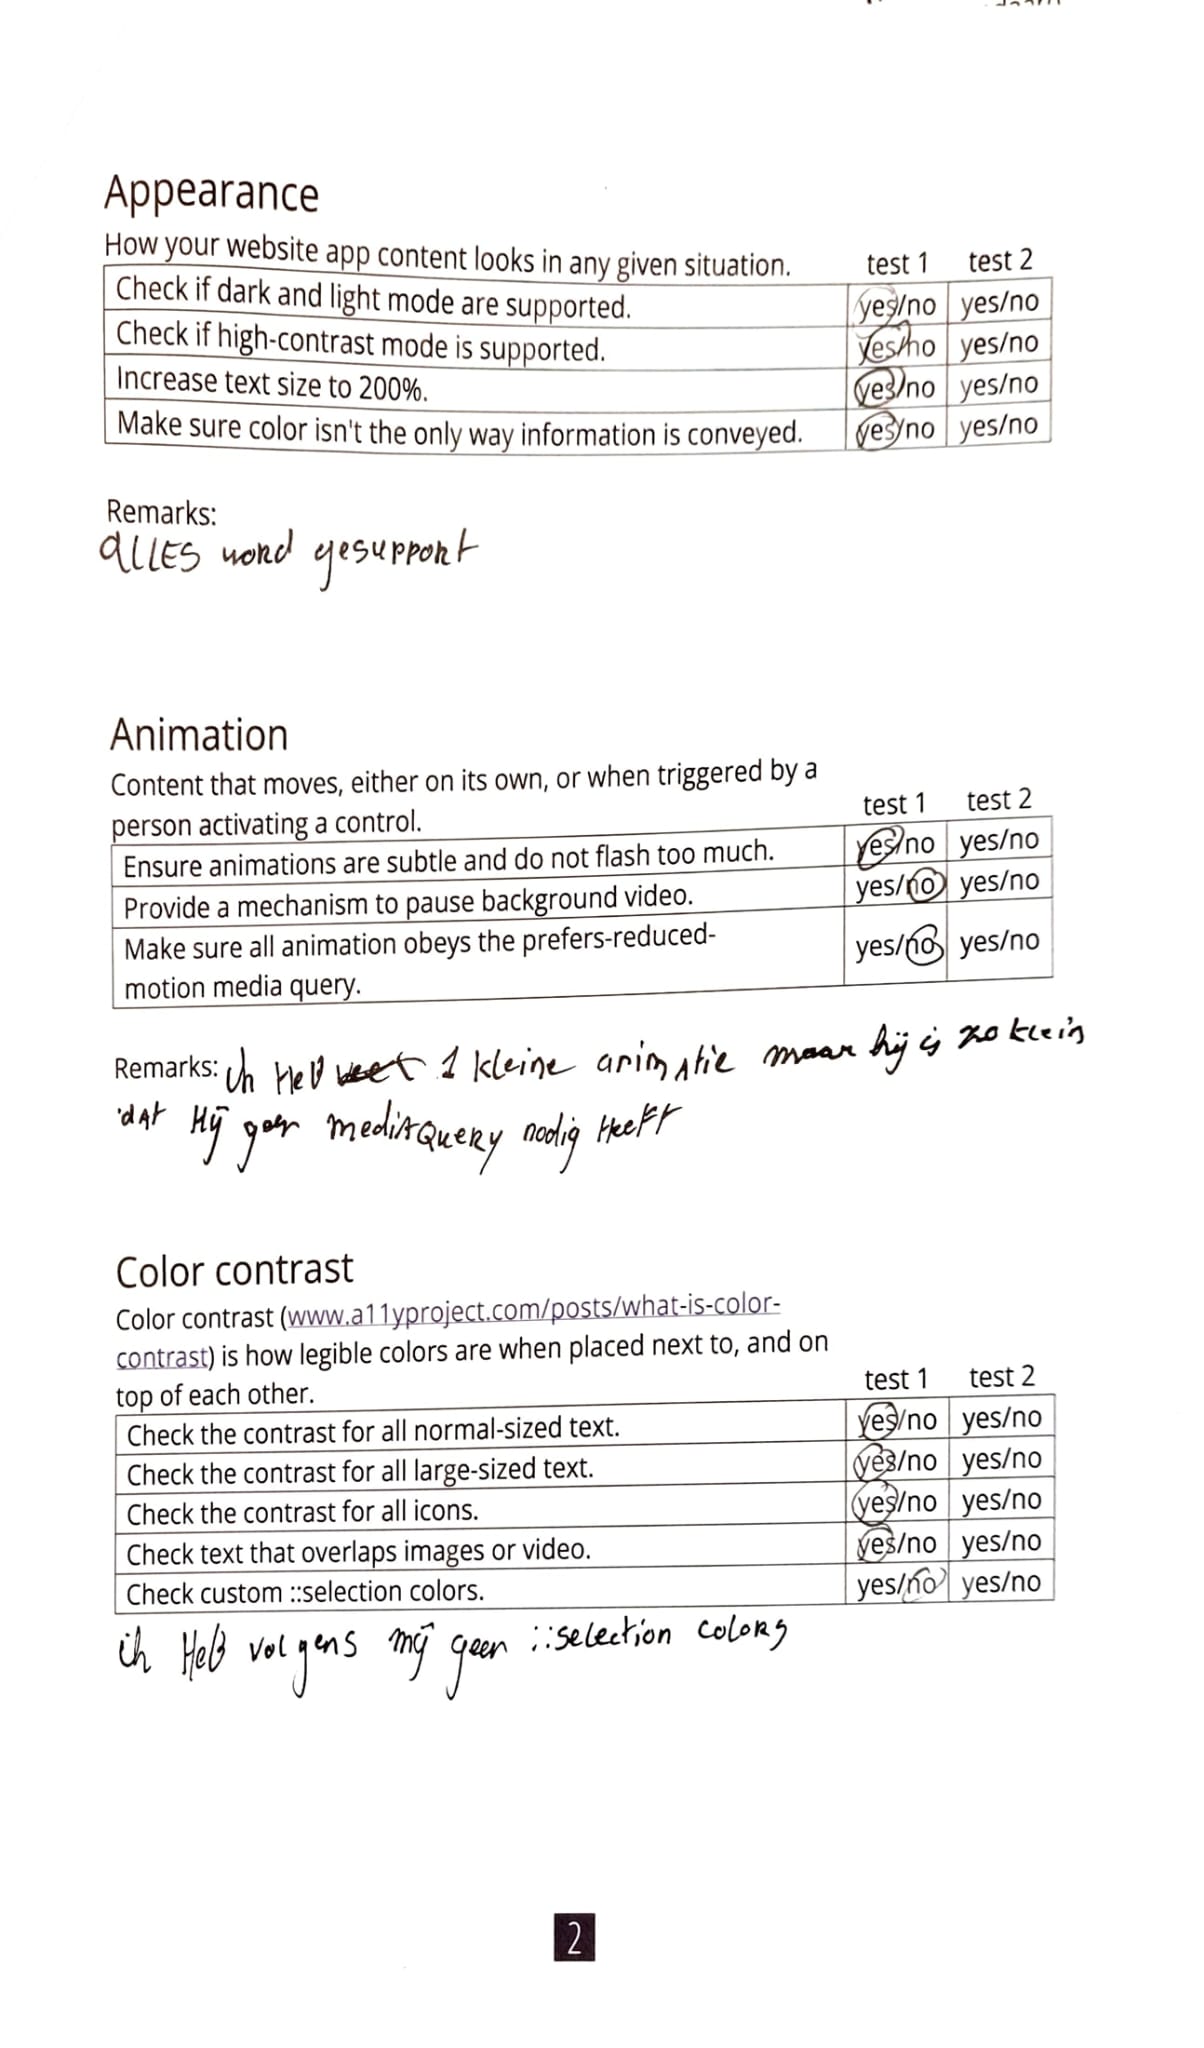 Appearance
How your website app content looks in any given situation.
test 1 test 2
Check if dark and light mode are supported. yes/no yes/no
Check if high-contrast mode is supported. yes/no yes/no
Increase text size to 200%. yes/no yes/no
Make sure color isn't the only way information is conveyed. yes/no yes/no
Remarks:
ALLES word gesupport
Animation
Content that moves, either on its own, or when triggered by a
person activating a control.
test 1 test 2
Ensure animations are subtle and do not flash too much. yes/no yes/no
Provide a mechanism to pause background video. yes/no yes/no
Make sure all animation obeys the prefers-reduced-
motion media query. yes/no yes/no
Remarks: ik HeB 1 kleine animatie maar hij is zo klein
dAt Hij geen mediAQuery nodig HeeFt
Color contrast
Color contrast (www.a11yproject.com/posts/what-is-color-
contrast) is how legible colors are when placed next to, and on
top of each other.
test 1 test 2
Check the contrast for all normal-sized text. yes/no yes/no
Check the contrast for all large-sized text. yes/no yes/no
Check the contrast for all icons. yes/no yes/no
Check text that overlaps images or video. yes/no yes/no
Check custom ::selection colors. yes/no yes/no
ik HeB volgens mij geen ::selection colors
2